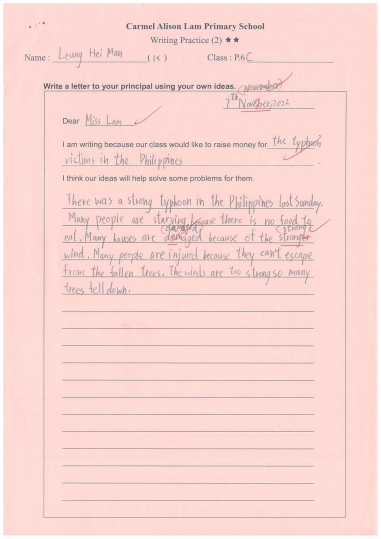 Carmel Alison Lam Primary School
Writing Practice (2) ★★
Name : Leung Hei Man (18) Class : P.6C
Write a letter to your principal using your own ideas. (November)
7th Novber,2022
Dear Miss Lam
I am writing because our class would like to raise money for the typhoon
victims in the Philippines .
I think our ideas will help solve some problems for them.
There was a strong typhoon in the Philippines last Sunday.
Many people are starving because there is no food to
(damaged) strong
eat. Many houses are damaged because of the
wind. Many people are injured because they can't escape
from the fallen trees. The winds are too strong so many
trees fell down.